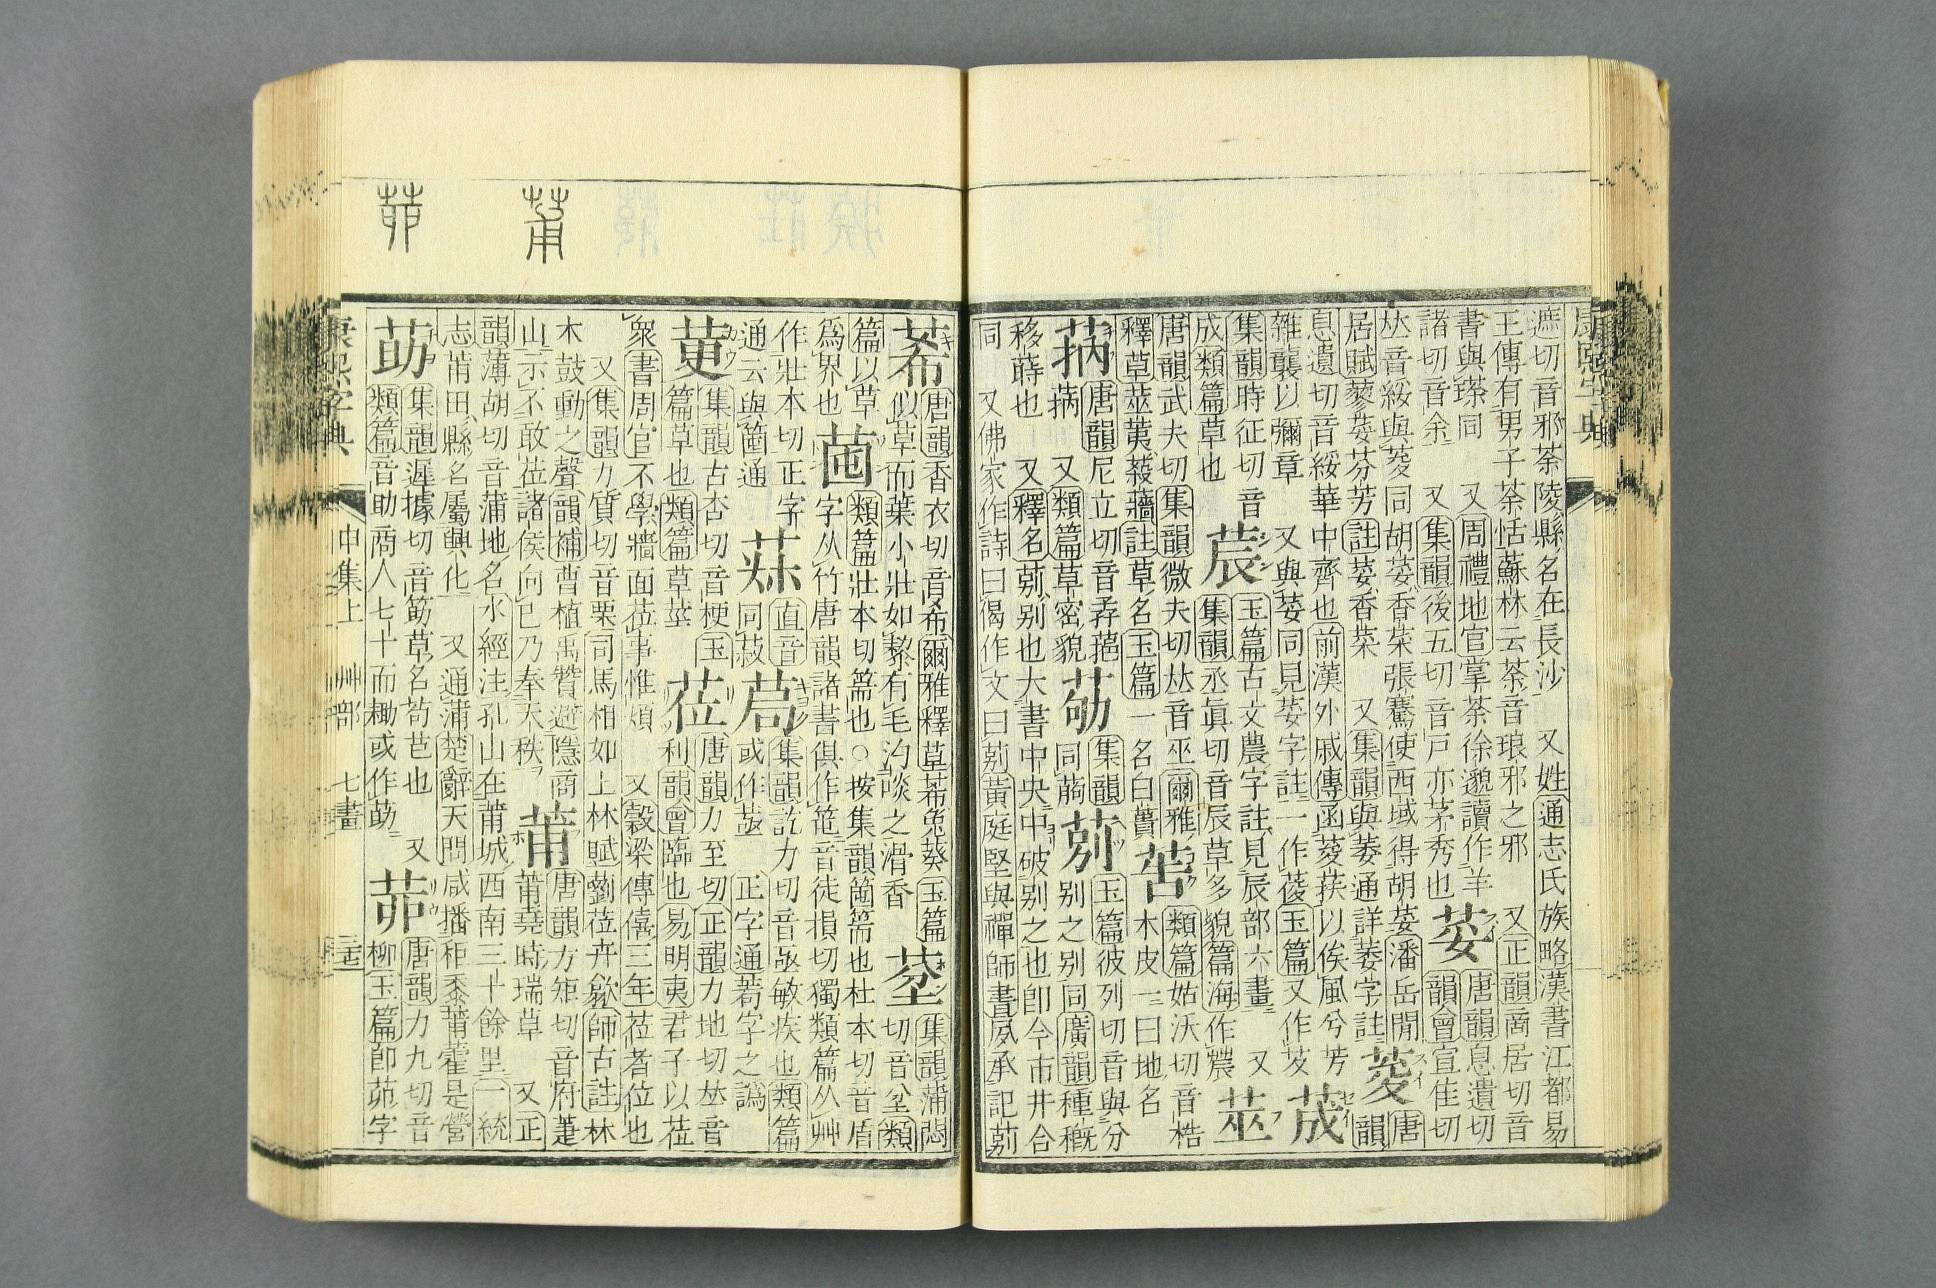 康熙字典
遮切音邪荼陵縣名在長沙 又姓通志氏族略漢書江都易
王傳有男子荼恬蘇林云荼音琅邪之邪 又正韻商居切音
書與瑹同 又周禮地官掌荼徐邈讀作羊
諸切音余 又集韻後五切音戸亦茅秀也
荽 唐韻息遺切
韻會宣佳切
𠀤音綏與荾同胡荽香菜張騫使西域得胡荽潘岳閒
居賦蓼荽芬芳註荽香菜 又集韻與荾通詳荾字註
荾 唐
韻
息遺切音綏華中齊也前漢外戚傳函荾荴以俟風兮芳
雜襲以彌章 又與荽同見荽字註一作葰玉篇又作芆
荿
集韻時征切音
成類篇草也
莀 玉篇古文農字註見辰部六畫 又
集韻丞眞切音辰草多貌篇海作農
莁
唐韻武夫切集韻微夫切𠀤音巫爾雅
釋草莁荑蔱蘠註草名玉篇一名白蕢
莻
類篇姑沃切音梏
木皮一曰地名
蒳 唐韻尼立切音孨葩
蒳 又類篇草密貌
莇 集韻
同蒟
莂 玉篇彼列切音與分
別之別同廣韻種穊
移蒔也 又釋名莂別也大書中央中破別之也卽今市井合
同 又佛家作詩曰偈作文曰莂黃庭堅與禪師書夙承記莂
莆
茆
莃 唐韻香衣切音希爾雅釋草莃兔葵玉篇
似草而葉小壯如藜有毛汋啖之滑香
莝 集韻蒲悶
切音坌類
篇以草
爲界也
莔 類篇壯本切篅也○按集韻篅也杜本切音盾
字从竹唐韻諸書俱作笹音徒損切獨類篇从艸
作壯本切正字
通云與箘通
菻 直音
同菽
莻 集韻訖力切音亟敏疾也類篇
或作䓧 正字通莻字之譌
莄 集韻古杏切音梗玉
篇草也類篇草莖
莅 唐韻力至切正韻力地切𠀤音
利韻會臨也易明夷君子以莅
衆書周官不學牆面莅事惟煩 又穀梁傳僖三年莅者位也
又集韻力質切音栗司馬相如上林賦劉莅卉歙師古註林
木鼓動之聲韻補曹植禹贊避隱商
山示不敢莅諸侯向已乃奉天秩
莆 唐韻方矩切音府萐
莆堯時瑞草 又正
韻薄胡切音蒲地名水經注孔山在莆城西南三十餘里一統
志莆田縣名屬興化 又通蒲楚辭天問咸播秬黍莆雚是營
莇 集韻遲據切音筯草名苟芑也 又
類篇音助商人七十而耡或作莇
茆 唐韻力九切音
柳玉篇卽茆字
康熙字典 申集上 艸部 七畫